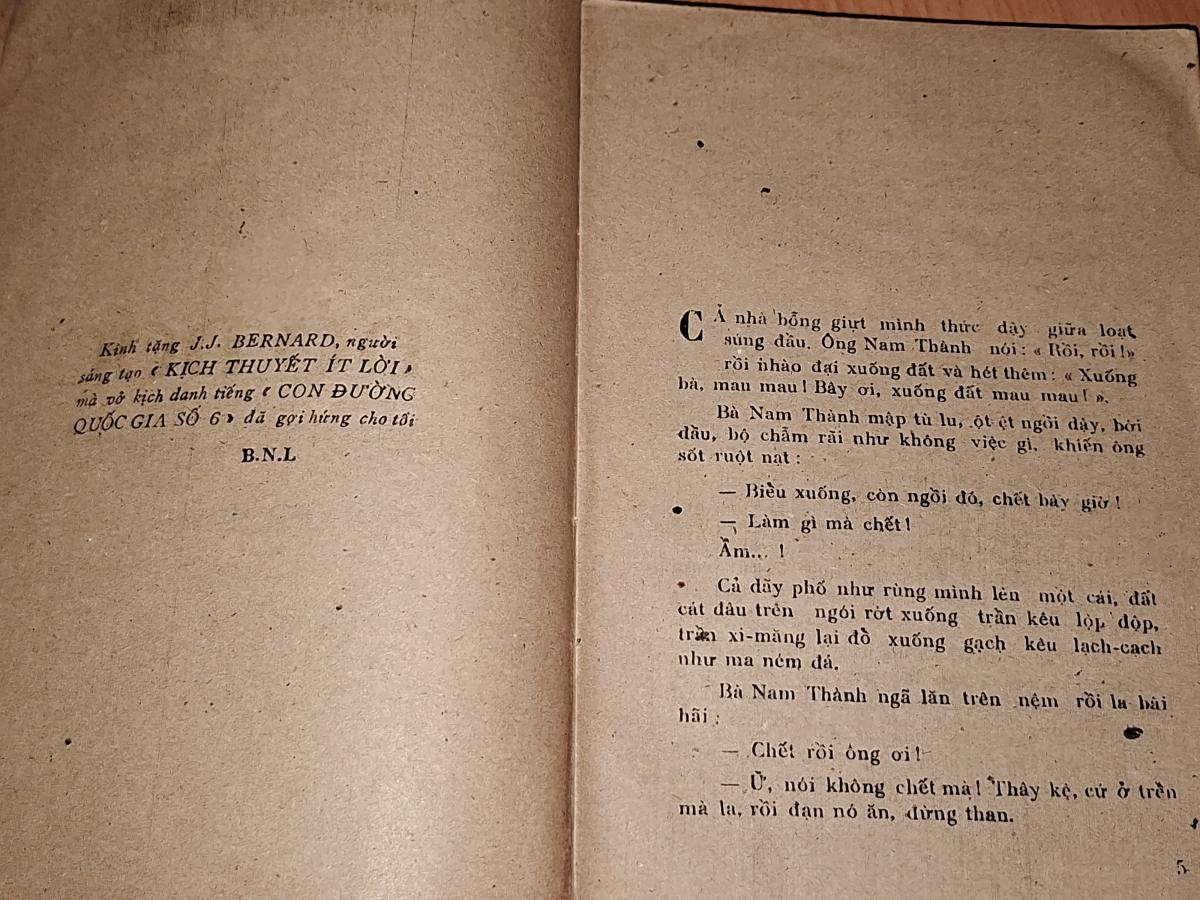 Kính tặng J.J. BERNARD, người
sáng tạo « KỊCH THUYẾT ÍT LỜI »
mà vở kịch danh tiếng « CON ĐƯỜNG
QUỐC GIA SỐ 6 » đã gợi hứng cho tôi
B.N.L
CẢ nhà bỗng giựt mình thức dậy giữa loạt
súng đầu. Ông Nam Thành nói : « Rồi, rồi !»
rồi nhào đại xuống đất và hét thêm : « Xuống
bà, mau mau ! Bây ơi, xuống đất mau mau ! ».
Bà Nam Thành mập tù lu, ột ệt ngồi dậy, bới
đầu, bộ chẫm rãi như không việc gì, khiến ông
sốt ruột nạt :
— Biểu xuống, còn ngồi đó, chết bây giờ !
— Làm gì mà chết !
Ầm... !
Cả dãy phố như rùng mình lên một cái, đất
cát đâu trên ngói rớt xuống trần kêu lộp độp,
trần xi-măng lại đổ xuống gạch kêu lạch-cạch
như ma ném đá.
Bà Nam Thành ngã lăn trên nệm rồi la bài
hãi :
— Chết rồi ông ơi !
— Ử, nói không chết mà ! Thây kệ, cứ ở trển
mà la, rồi đạn nó ăn, đừng than.
5